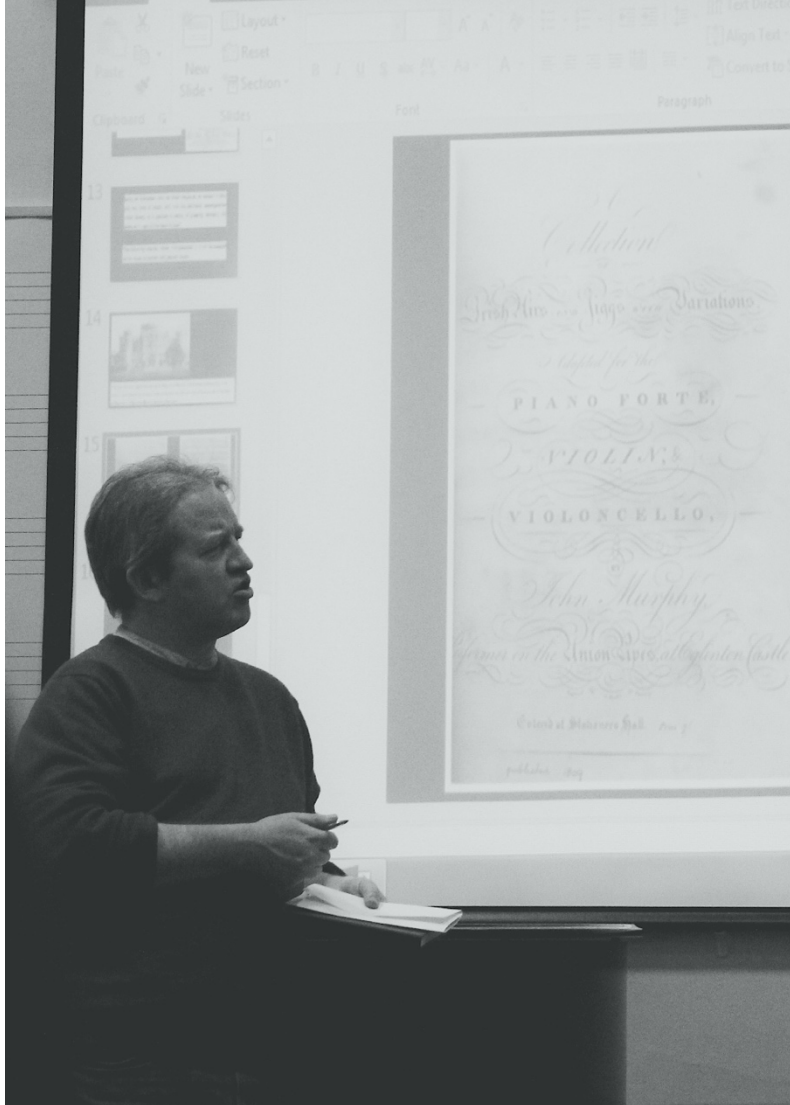 Layout
Reset
New
Slide
Section
Paste
Clipboard
Slides
Font
Paragraph
Text Directi
Align Text
Convert to S
13
14
15
A
Collection
of
Irish Airs and Jiggs with Variations
Adapted for the
PIANO FORTE,
VIOLIN, &
VIOLONCELLO,
by
John Murphy,
performer on the Union Pipes at Eglinton Castle
Enterd at Stationers Hall.
published